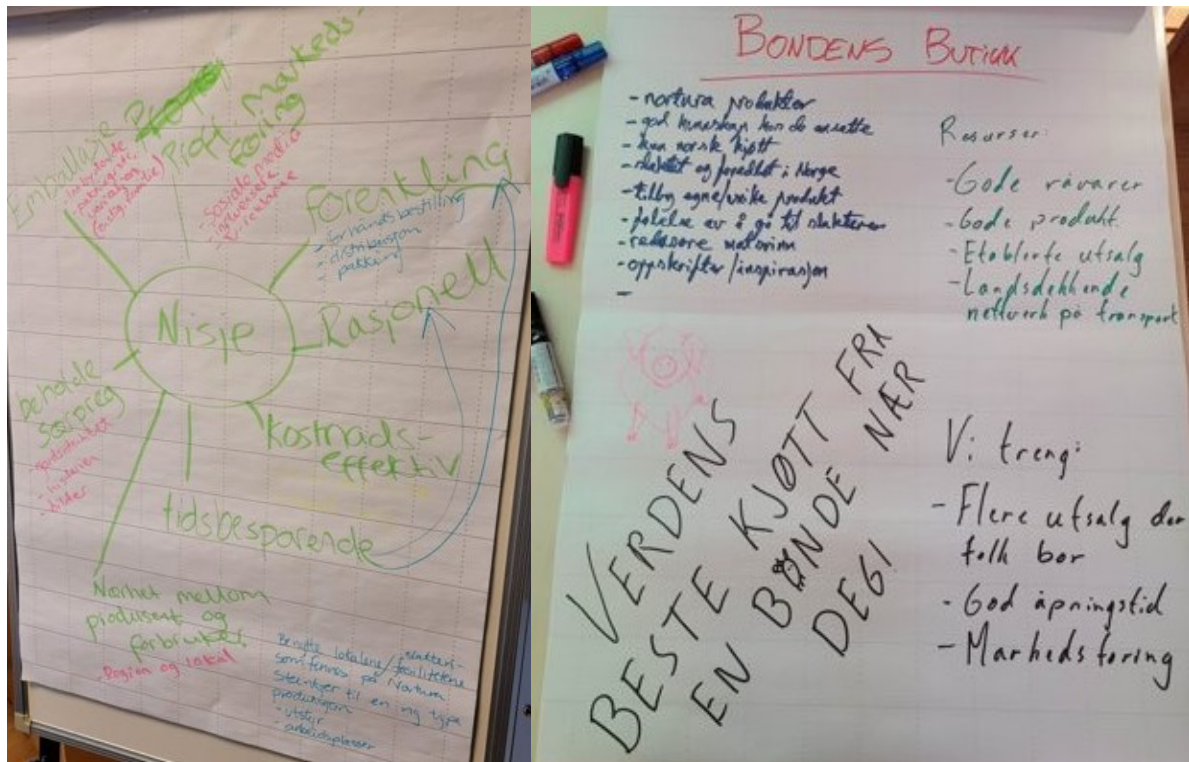 Emballasje
Profil
Markeds-
føring
- Sosiale media
- reklame
Forenkling
- forhåndsbestilling
- distribusjon
- pakking
Rasjonell
Nisje
beholde
særpreg
- historien
- bilder
Kostnads-
effektiv
tidsbesparende
Nærhet mellom
produsent og
forbruker
- Region og lokal
Benytte lokalene/fasilitetene
som finnes på Nortura
Steinkjer til en ny type
produksjon
- utstyr
- arbeidsplasser
BONDENS BUTIKK
- nortura produkter
- god kunnskap hos de ansatte
- kun norsk kjøtt
- slaktet og foredlet i Norge
- tilby egne/unike produkt
- følelse av å gå til slakteren
- redusere matsvinn
- oppskrifter/inspirasjon
-
Resurser:
- Gode råvarer
- Gode produkt
- Etablerte utsalg
- Landsdekkende
nettverk på transport
VERDENS
BESTE KJØTT FRA
EN BONDE NÆR
DEG!
Vi treng:
- Flere utsalg der
folk bor
- God åpningstid
- Markedsføring